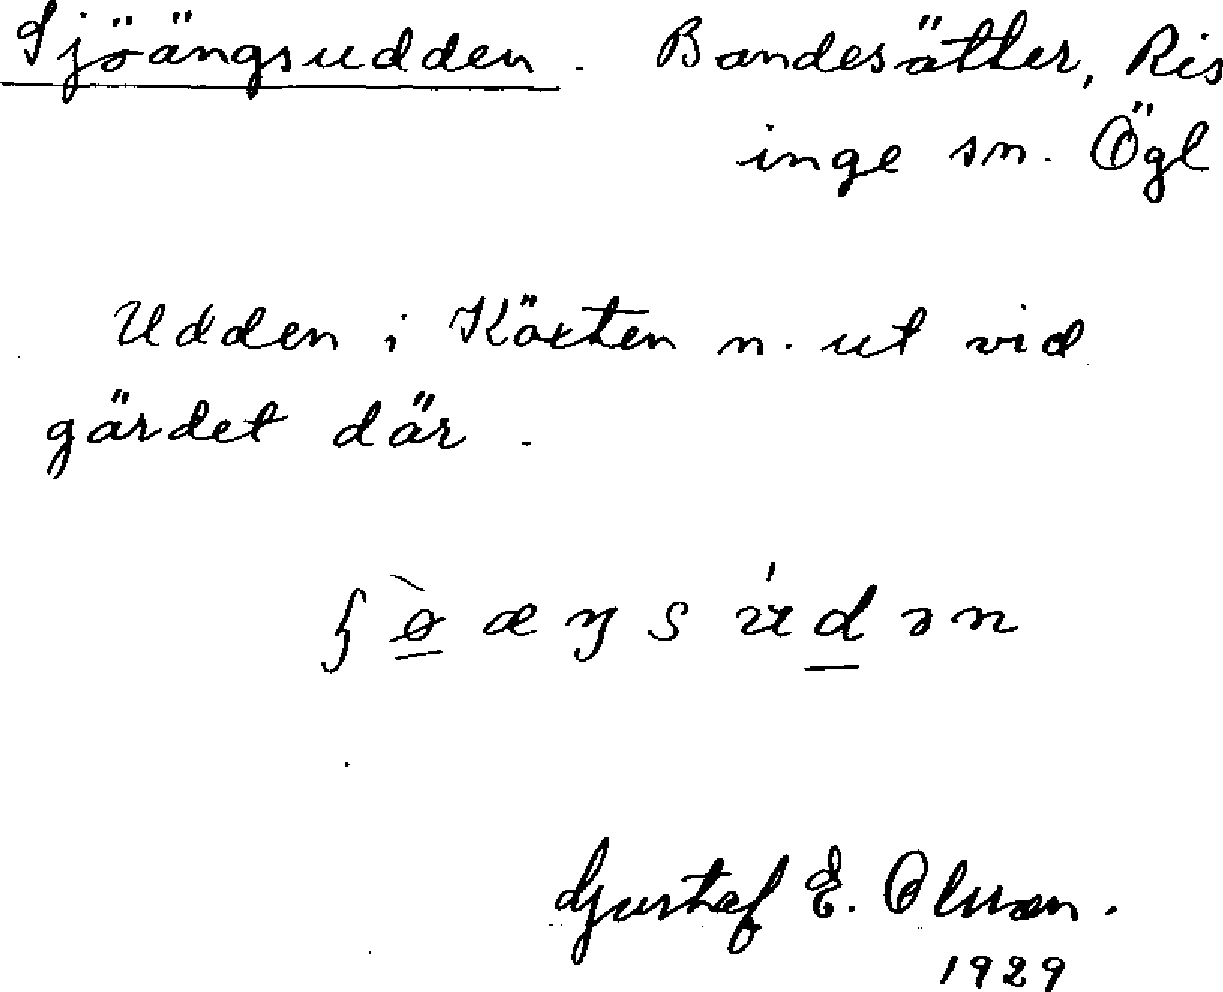 Sjöängsudden. Bandesätter, Ris
inge sn. Ögl
Udden i Köxten n. ut vid
gärdet där.
Gustaf E. Olsson.
1929